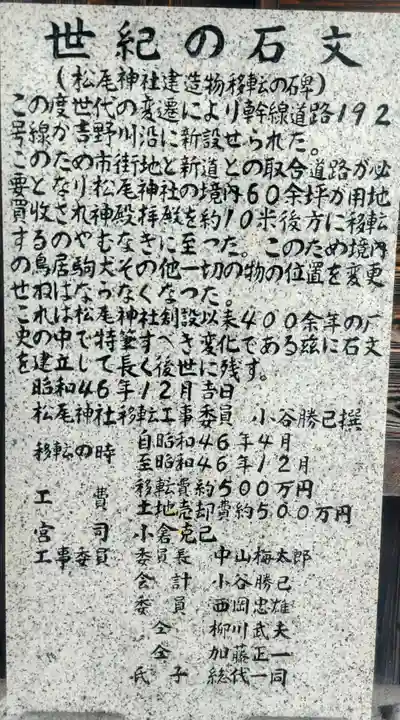 世紀の石文
(松尾神社建造物移転の碑)
この度世代の変遷により幹線道路192
号線が吉野川沿に新設せられた。
このため市街地と新道との取合道路が必
要となり松尾神社の境内60余坪が用地
買収され神殿拝殿を約10米後方に移転
するのやむなきに至った。このため境内
の鳥居や駒犬その他一切の物の位置を変更
せねばならなくなった。
これは松尾神社創設以来400余年の
史の中で特筆すべき変化である茲に石文
を建立して長く後世に残す。
昭和46年12月吉日
松尾神社移転工事委員 小谷勝己撰
移転の時 自昭和46年4月
至昭和46年12月
工費 移転費約500万円
土地売却費約500万円
宮司 小倉克己
工事委員 委員長 中山梅太郎
会計 小谷勝己
委員 西岡忠雄
仝 柳川武夫
仝 加藤正一
氏子総代一同